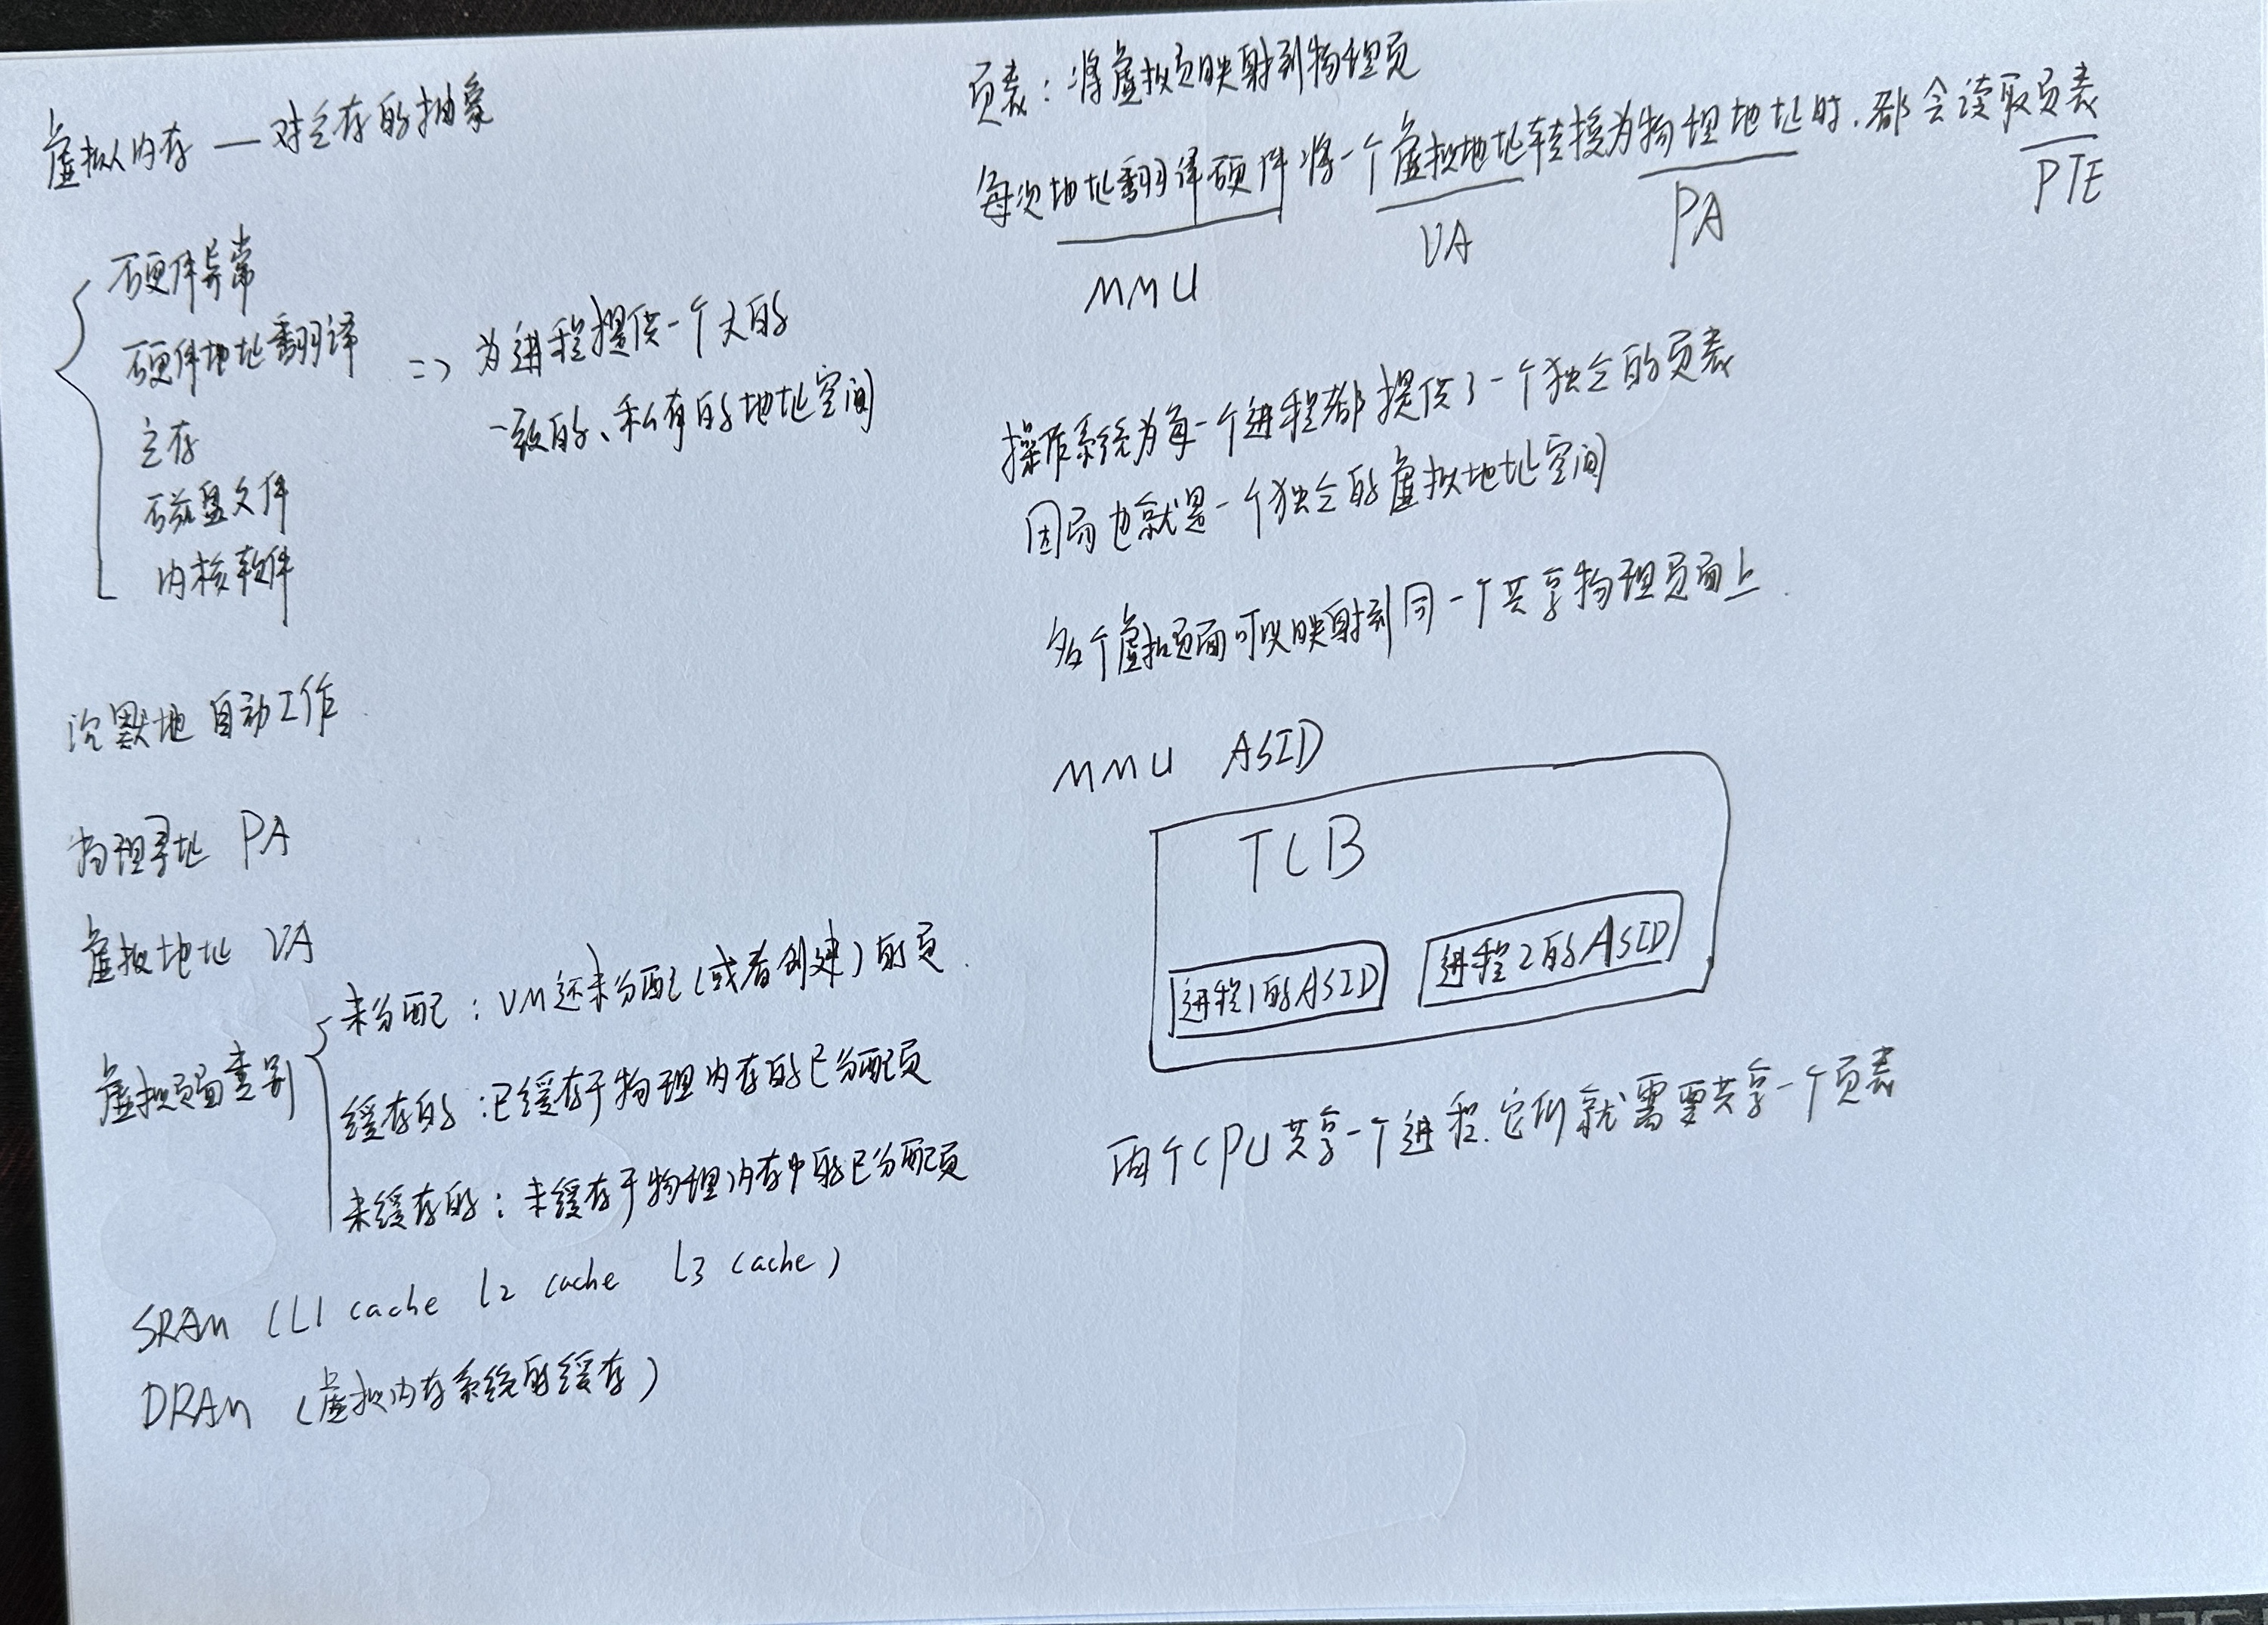 虚拟内存 — 对主存的抽象
硬件异常
硬件地址翻译
主存
磁盘文件
内核软件
=> 为进程提供一个大的
一致的、私有的地址空间
沉默地 自动工作
物理寻址 PA
虚拟地址 VA
虚拟页面类别
未分配：VM还未分配（或者创建）的页
缓存的：已缓存于物理内存的已分配页
未缓存的：未缓存于物理内存中的已分配页
SRAM (L1 cache L2 cache L3 cache)
DRAM (虚拟内存系统的缓存)
页表：将虚拟页映射到物理页
每次地址翻译硬件将一个虚拟地址转换为物理地址时，都会读取页表
MMU VA PA PTE
操作系统为每一个进程都提供了一个独立的页表
因而也就是一个独立的虚拟地址空间
多个虚拟页面可以映射到同一个共享物理页面上
MMU ASID
TLB
进程1的ASID
进程2的ASID
两个CPU共享一个进程，它们就需要共享一个页表